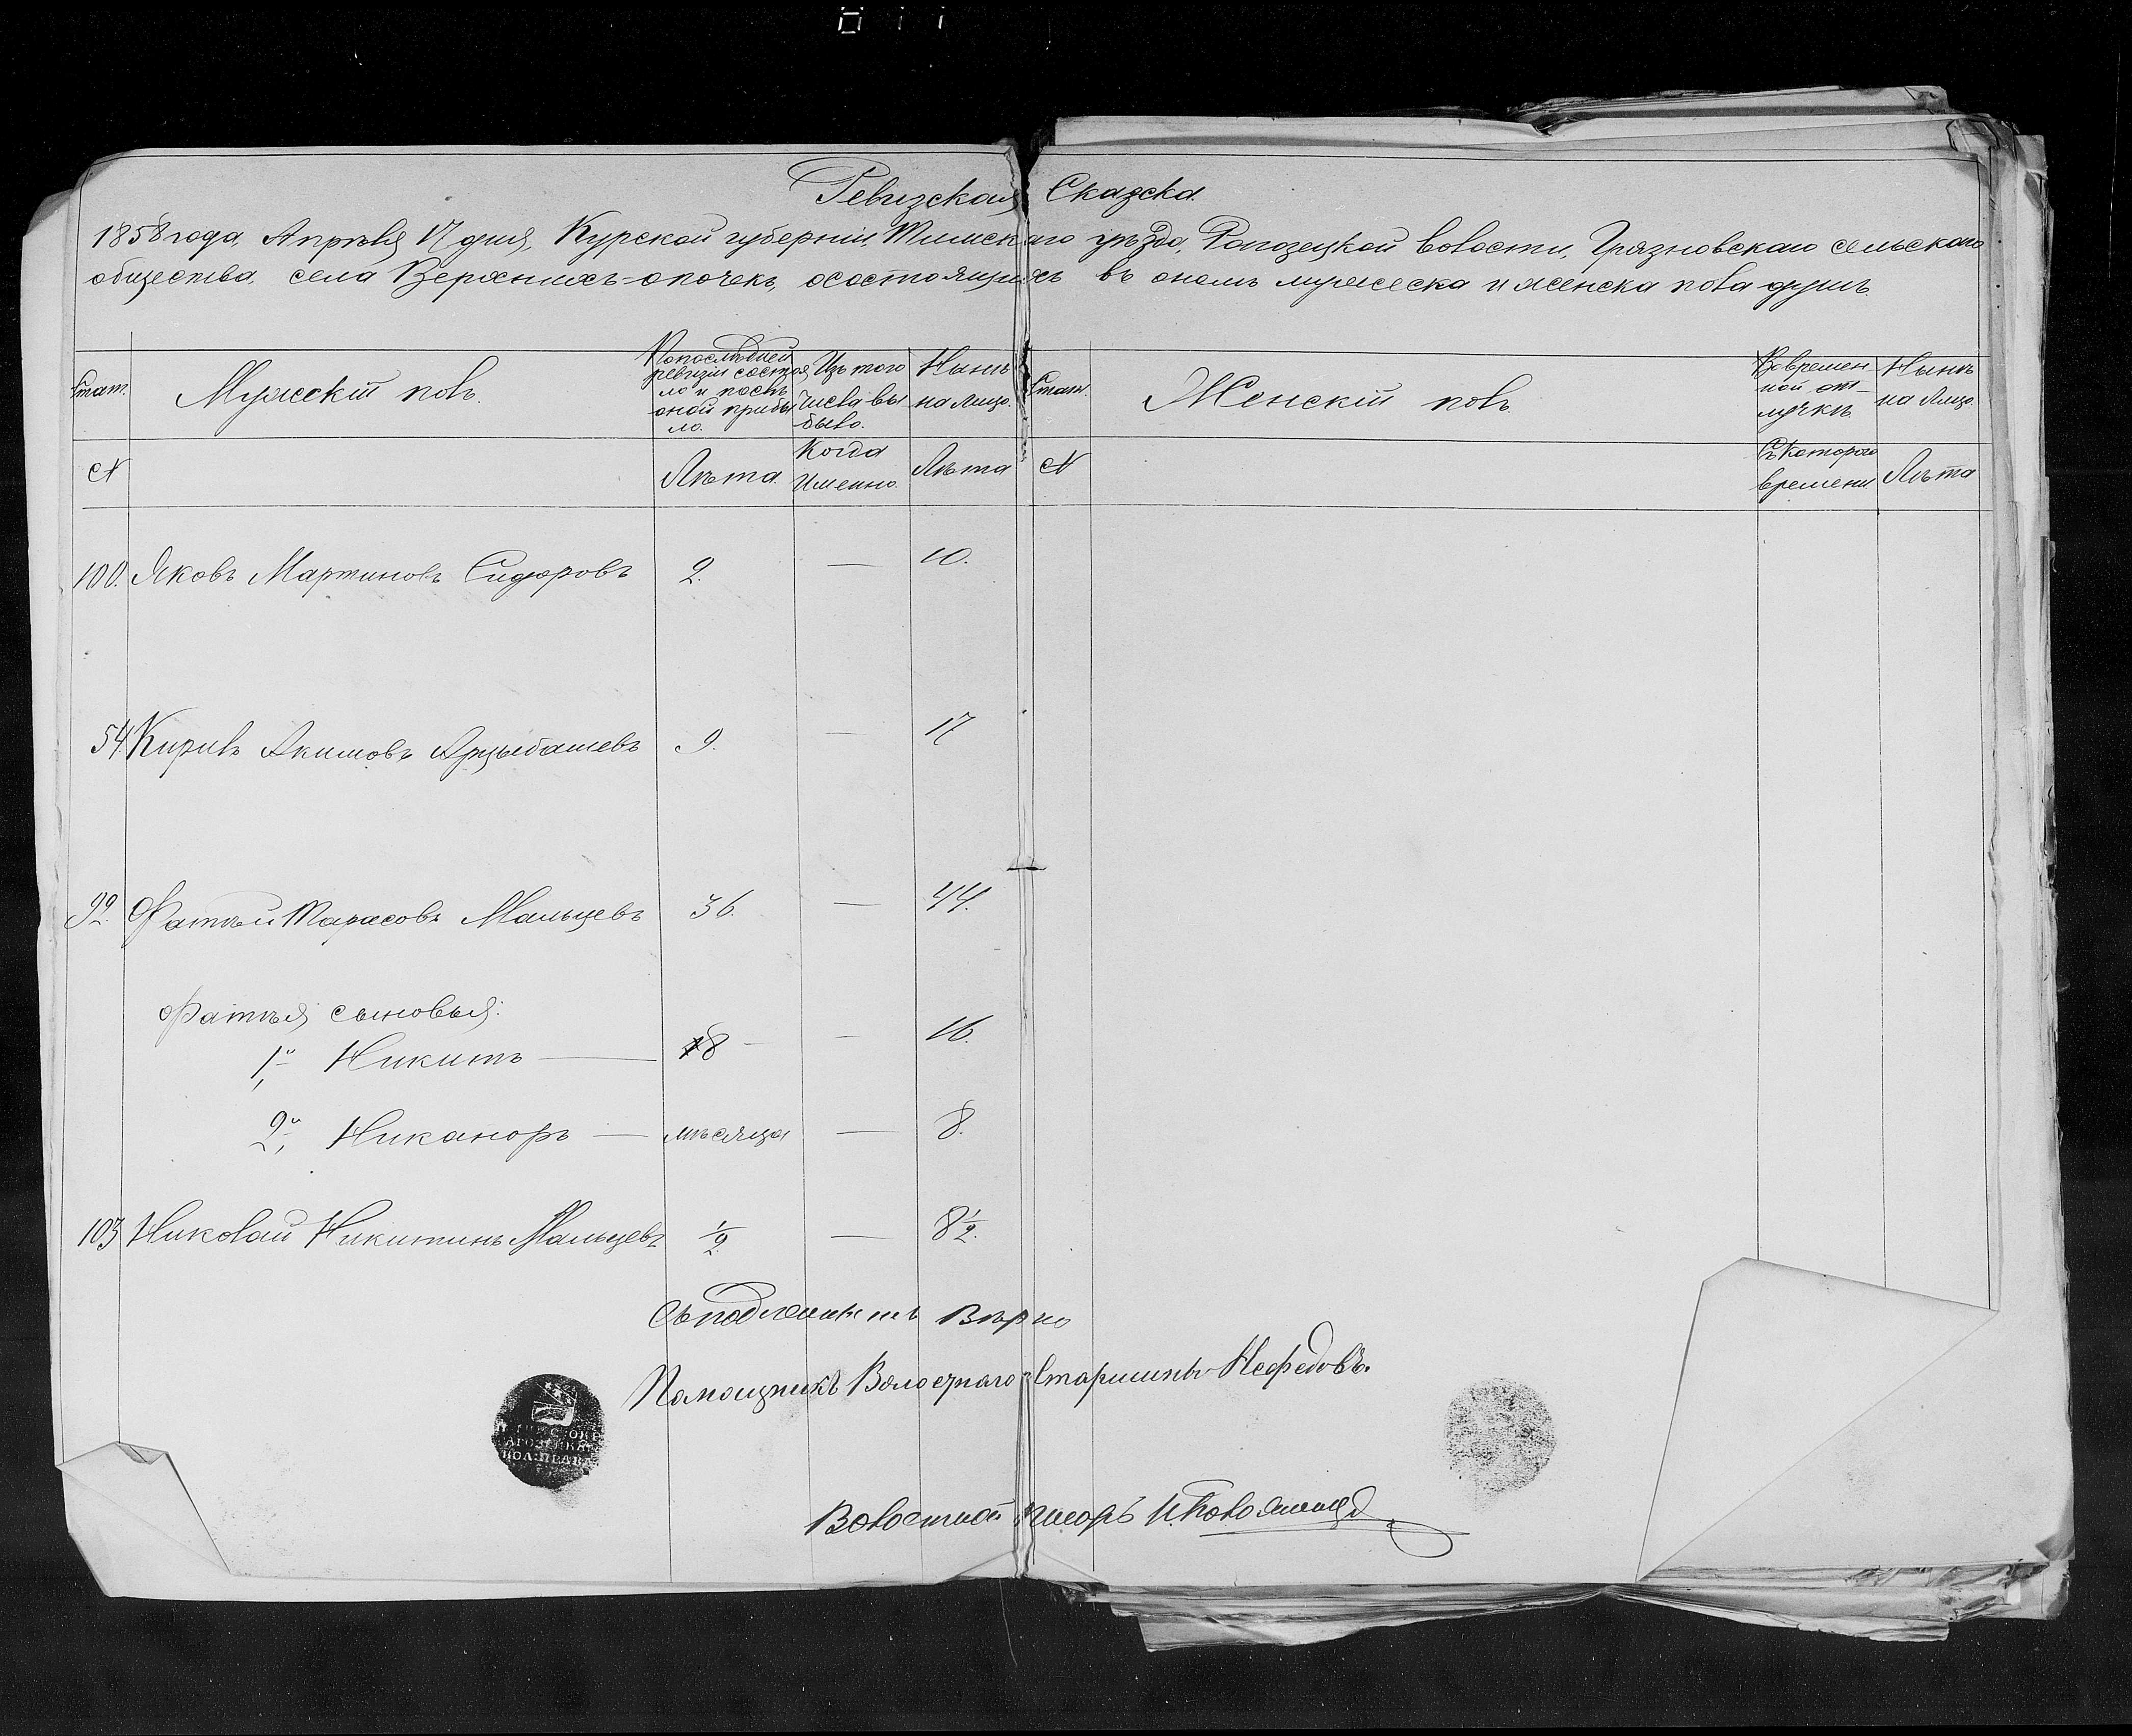 Ревизская Сказска.
1858 года, Апрѣля 17 дня, Курской губерніи Тимскаго уѣзда, Рогозецкой волости, Грязновскаго сельскаго
общества, села Верхнихъ-опочекъ, о состоящихъ въ ономъ мужеска и женска пола душъ.
Стат. Мужескій полъ. Попослѣдней ревизіи состояло и послѣ оной прибыло. Изъ того числа выбыло. Нынѣ на лицо. Стат. Женскій полъ. Во временной отлучкѣ. Нынѣ на лицо.
№ Лѣта. Когда Именно. Лѣта № Съ Котораго времени Лѣта
100. Яковъ Мартиновъ Сидоровъ 2. — 10.
54. Кирилъ Акимовъ Арцыбашевъ 9. — 17
92. Фатѣй Тарасовъ Мальцевъ 36. — 44.
Фатѣя сыновья:
1й Никитъ — 8 — — 16.
2й, Никаноръ — мѣсяца — 8.
103 Николай Никитинъ Мальцевъ 1/2 — 8 1/2.
Съ подлиннымъ Вѣрно
Помощникъ Волостнаго Старшины Нефедовъ.
Волостной писарь